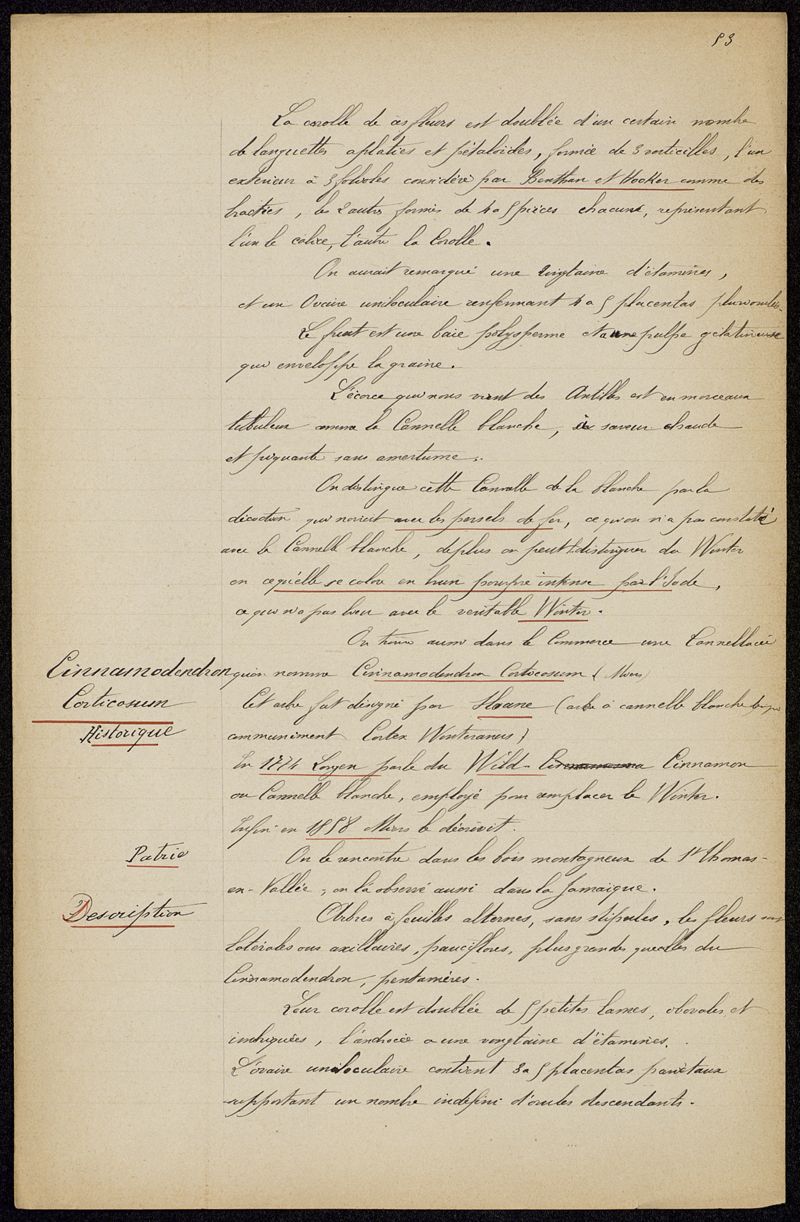 53
La corolle de ces fleurs est doublée d'un certain nombre
de languettes aplaties et pétaloïdes, formée de 3 verticilles, l'un
extérieur à 3 folioles considéré par Benthan et Hooker comme des
bractées, les 2 autres formés de 4 à 5 pièces chacune, représentant
l'un le calice, l'autre la Corolle.
On aurait remarqué une vingtaine d'étamines,
et un Ovaire uniloculaire renfermant 4 à 5 placentas pluriovulés.
Le fruit est une baie polysperme et a une pulpe gélatineuse
qui enveloppe la graine.
L'écorce qui nous vient des Antilles est en morceaux
tubuleux comme la Cannelle blanche, à saveur chaude
et piquante sans amertume.
On distingue cette Cannelle de la blanche par la
décoction qui noircit avec les persels de fer, ce qu'on n'a pas constaté
avec la Cannelle blanche, de plus on peut la distinguer du Winter
en ce qu'elle se colore en brun pourpre intense par l'Iode,
ce qui n'a pas lieu avec le véritable Winter.
On trouve aussi dans le Commerce une Cannellacée
Cinnamodendron
qu'on nomme Cinnamodendron Corticosum (Miers)
Corticosum
Cet arbre fut désigné par Sloane (arbre à cannelle blanche
Historique
communiment Cortex Winteranus)
En 1774 Longen parle du Wild Cinnamon
ou Cannelle blanche, employé pour remplacer le Winter.
Enfin en 1858 Miers le décrivit.
Patrie
On le rencontre dans les bois montagneux de St Thomas-
en-Vallée; on l'a observé aussi dans la Jamaïque.
Description
Arbres à feuilles alternes, sans stipules, les fleurs sont
latérales ou axillaires, pauciflores, plus grandes que celles du
Cinnamodendron, pentamères.
Leur corolle est doublée de 5 petites lames, obovales et
imbriquées, l'androcée a une vingtaine d'étamines.
L'ovaire uniloculaire contient 3 à 5 placentas pariétaux
supportant un nombre indéfini d'ovules descendants.